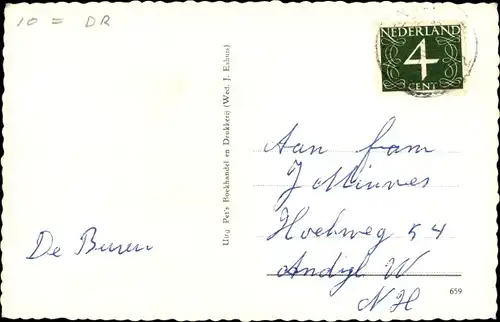 10 = DR
NEDERLAND
4
CENT
Uitg. Pet's Boekhandel en Drukkerij (Wed. J. Eshuis)
Aan fam
J Minnes
Hoekweg 54
Andijk W
NH
De Buren
659